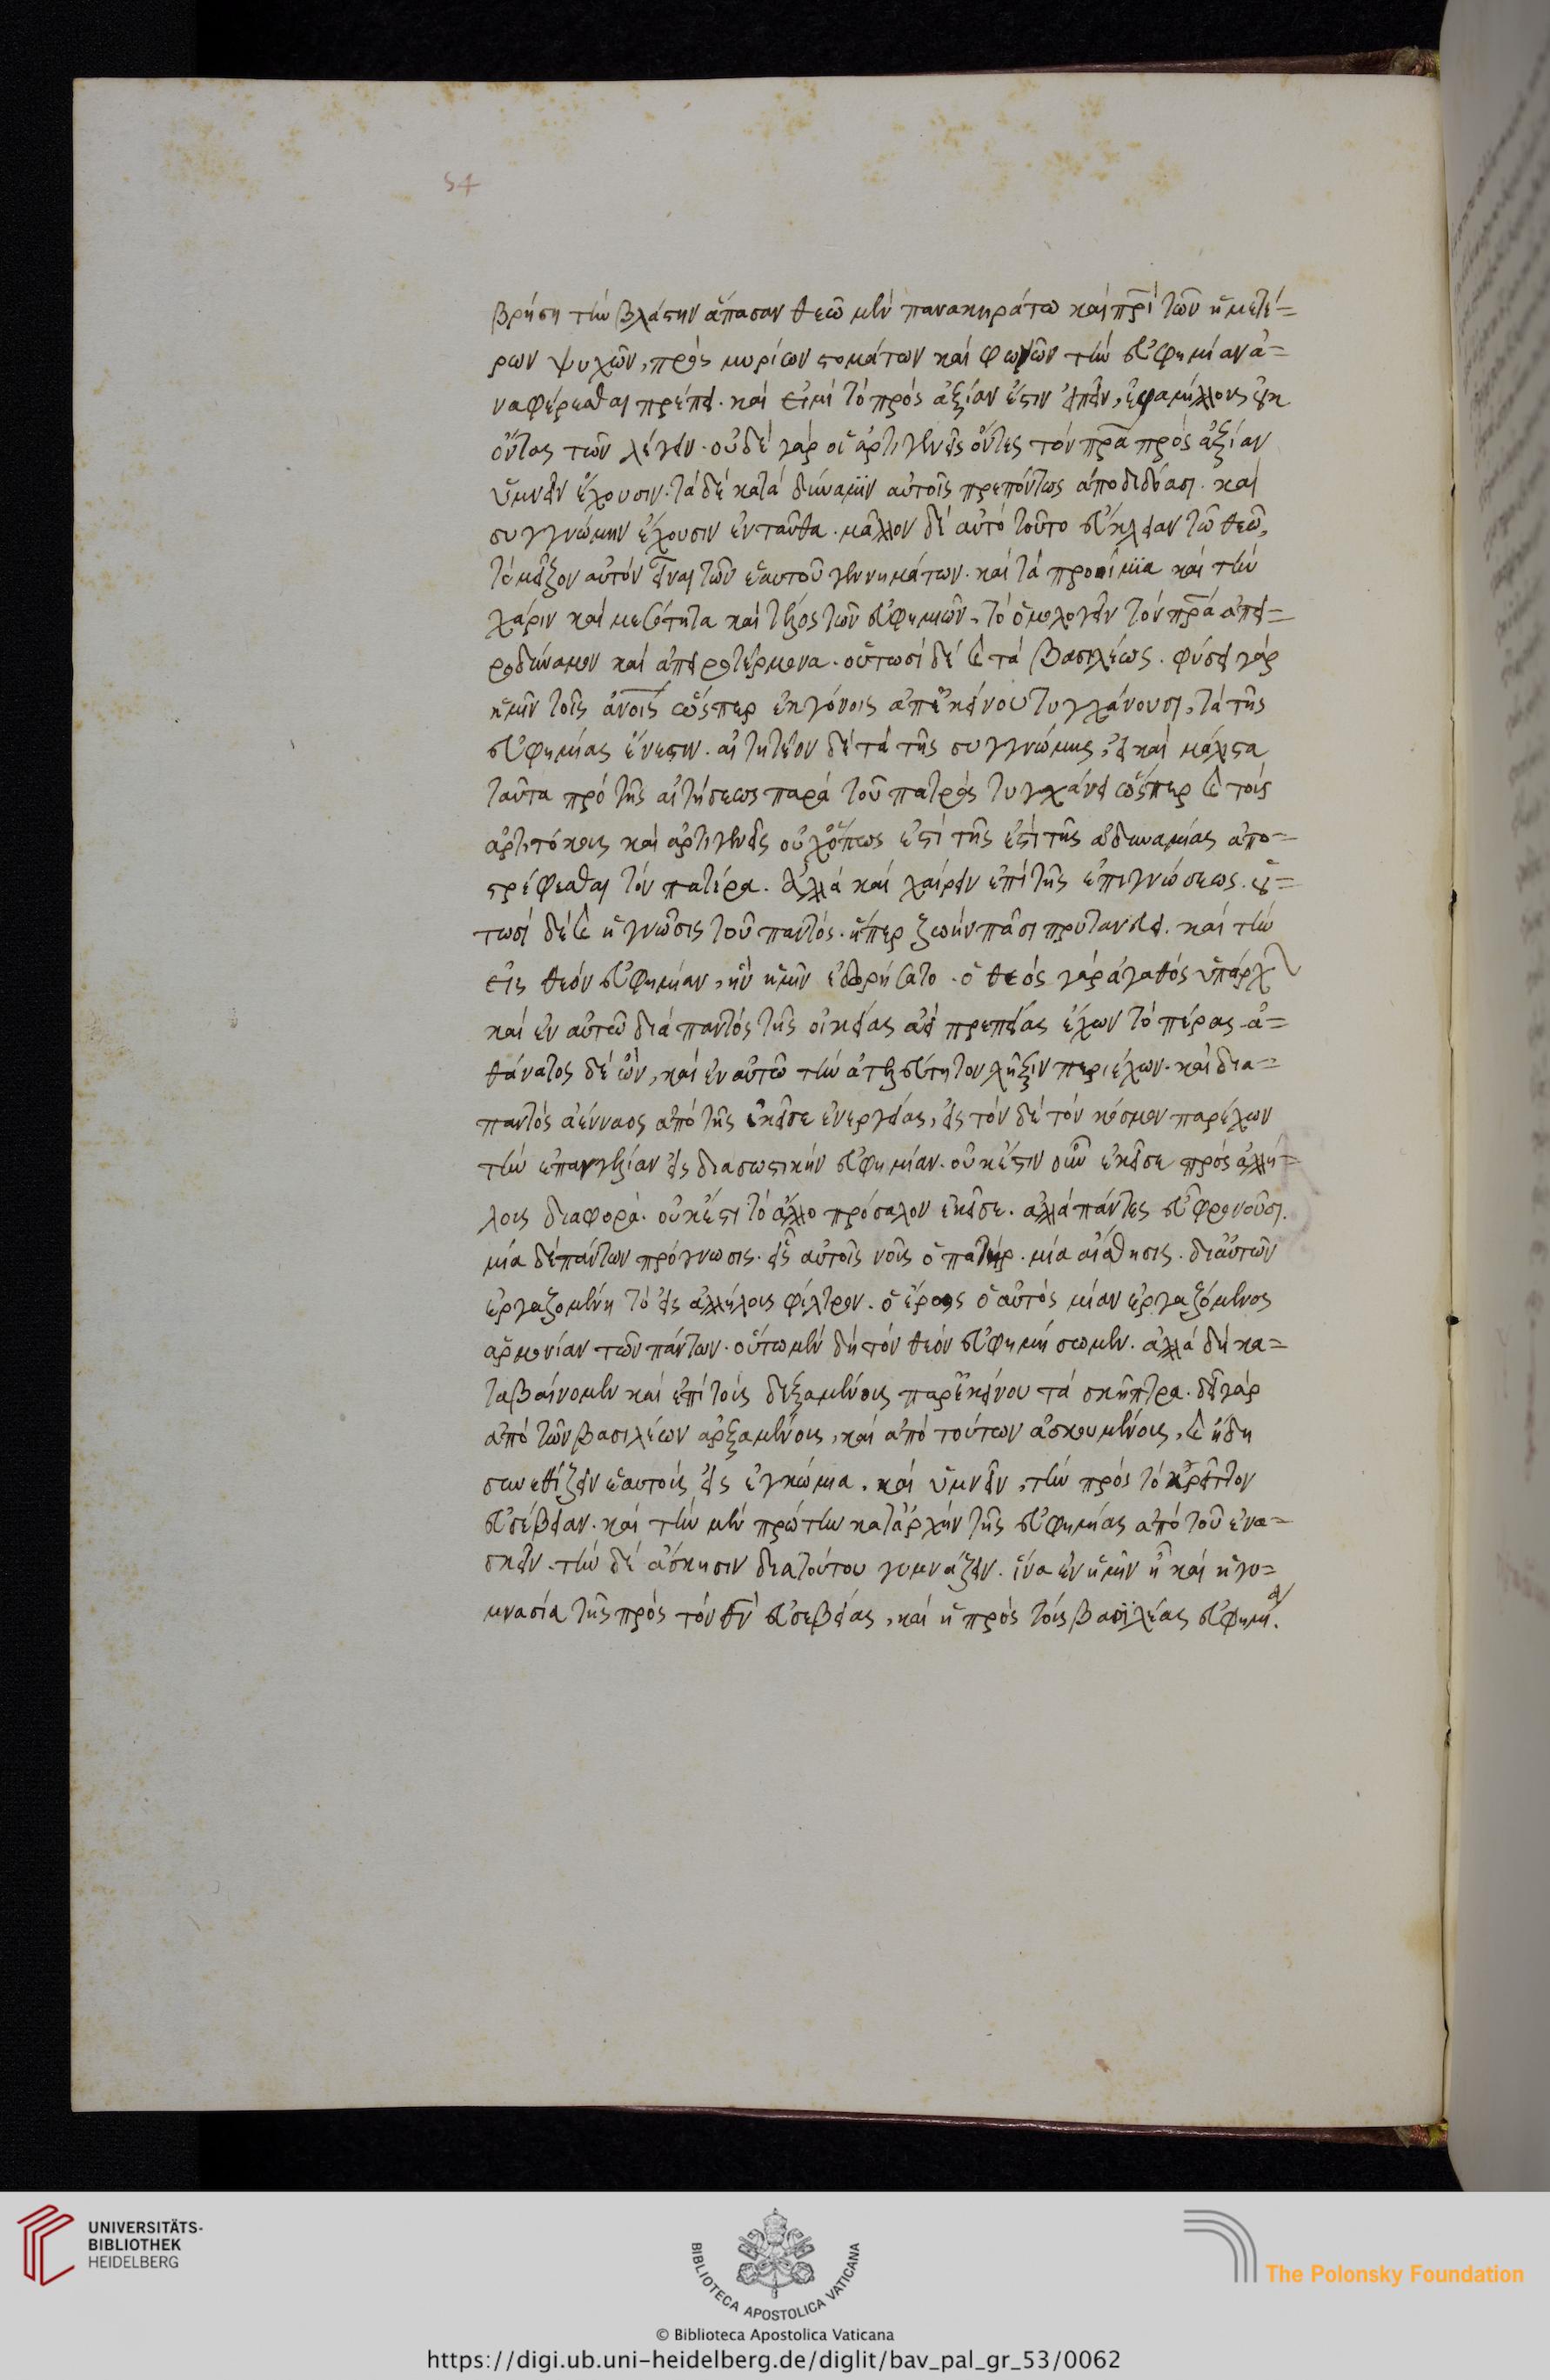 54
βρήση τὴν βλάστην ἅπασαν θεῶ μὲν πανακηράτω καὶ πρὶ τῶν ἡμετέ=
ρων ψυχῶν, πρὸς μυρίων στομάτων καὶ φωνῶν τὴν εὐφημίαν ἀ=
ναφέρεσθαι πρέπει. καὶ εἰ μὴ τὸ πρὸς ἀξίαν ἔστιν εἰπεῖν, ἐφαμίλλους οὐκ
ὄντας τῶν λέγειν. οὐδὲ γὰρ οἱ ἀρτιγενεῖς ὄντες τὸν πρα πρὸς ἀξίαν
ὑμνεῖν ἔχουσιν. τὰ δὲ κατὰ δύναμϊν αὐτοῖς πρεπόντως ἀποδιδόασι. καὶ
συγγνώμην ἔχουσιν ἐνταῦθα. μᾶλλον δὲ αὐτὸ τοῦτο εὔκλειαν τῶ θεῶ,
τὸ μεῖζον αὐτὸν εἶναι τῶν ἑαυτοῦ γεννημάτων. καὶ τὰ προοίμϊα καὶ τὴν
χάριν καὶ μεσότητα καὶ τέλος τῶν εὐφημιῶν, τὸ ὁμολογεῖν τὸν πρα ἀπει=
ροδύναμον καὶ ἀπειροτέρμονα. οὑτωσὶ δὲ καὶ τὰ βασιλέως. φύσει γὰρ
ἡμῖν τοῖς ἀνοις ὥσπερ ἐκγόνοις ἀπ' ἐκείνου τυγχάνουσι, τὰ τῆς
εὐφημίας ἔνεστιν. αἰτητέον δὲ τὰ τῆς συγγνώμης, εἰ καὶ μάλιστα
ταῦτα πρὸ τῆς αἰτήσεως παρὰ τοῦ πατρὸς τυγχάνει ὥσπερ καὶ τοῖς
ἀρτιτόκοις καὶ ἀρτιγενεῖς οὐχ ὅπως ἔστι τῆς ἐπὶ τῆς ἀδυναμίας ἀπο=
στρέφεσθαι τὸν πατέρα. ἀλλὰ καὶ χαίρειν ἐπὶ τῆς ἐπιγνώσεως. οὑ=
τωσὶ δὲ καὶ ἡ γνῶσις τοῦ παντός. ἥπερ ζωὴν πᾶσι πρυτανεύει. καὶ τὴν
εἰς θεὸν εὐφημίαν, ἣν ἡμῖν ἐδωρήσατο. ὁ θεὸς γὰρ ἀγαθὸς ὑπάρχ
καὶ ἐν αὐτῶ διὰ παντὸς τῆς οἰκείας ἀεὶ πρεπείας ἔχων τὸ πέρας. ἀ=
θάνατος δὲ ὢν, καὶ ἐν αὐτῶ τὴν ἀτελεύτητον λῆξιν περιέχων. καὶ δια=
παντὸς ἀένναος ἀπὸ τῆς ἐκεῖσε ἐνεργείας, εἰς τὸν δὲ τὸν κόσμον παρέχων
τὴν ἐπαγγελίαν εἰς διασωστικὴν εὐφημίαν. οὐκ ἔστιν οὖν ἐκεῖσε πρὸς ἀλλή=
λοις διαφορά. οὐκ ἔστι τὸ ἄλλο πρόσαλον ἐκεῖσε. ἀλλὰ πάντες εὐφρονοῦσι.
μία δὲ πάντων πρόγνωσις. εἷς αὐτοῖς νοῦς ὁ πατήρ. μία αἴσθησις. δι' αὐτῶν
ἐργαζομένη τὸ εἰς ἀλλήλοις φίλτρον. ὁ ἔρως ὁ αὐτὸς μίαν ἐργαζόμενος
ἁρμονίαν τῶν πάντων. οὕτω μὲν δὴ τὸν θεὸν εὐφημήσωμεν. ἀλλὰ δὴ κα=
ταβαίνομεν καὶ ἐπὶ τοῖς δεξαμένοις παρ' ἐκείνου τὰ σκῆπτρα. δεῖ γὰρ
ἀπὸ τῶν βασιλέων ἀρξαμένοις, καὶ ἀπὸ τούτων ἀσκουμένοις, καὶ ἤδη
συνεθίζειν ἑαυτοῖς εἰς ἐγκώμια. καὶ ὑμνεῖν, τὴν πρὸς τὸ κρεῖττον
εὐσέβειαν. καὶ τὴν μὲν πρώτην καταρχὴν τῆς εὐφημίας ἀπὸ τοῦ ἐνα=
σκεῖν. τὴν δὲ ἄσκησιν διὰ τούτου γυμνάζειν. ἵνα ἐν ἡμῖν ἦ καὶ ἡ γυ=
μνασία τῆς πρὸς τὸν θν εὐσεβείας, καὶ ἡ πρὸς τοῖς βασϊλέας εὐφημία.
UNIVERSITÄTS-
BIBLIOTHEK
HEIDELBERG
BIBLIOTECA APOSTOLICA VATICANA
The Polonsky Foundation
© Biblioteca Apostolica Vaticana
https://digi.ub.uni-heidelberg.de/diglit/bav_pal_gr_53/0062